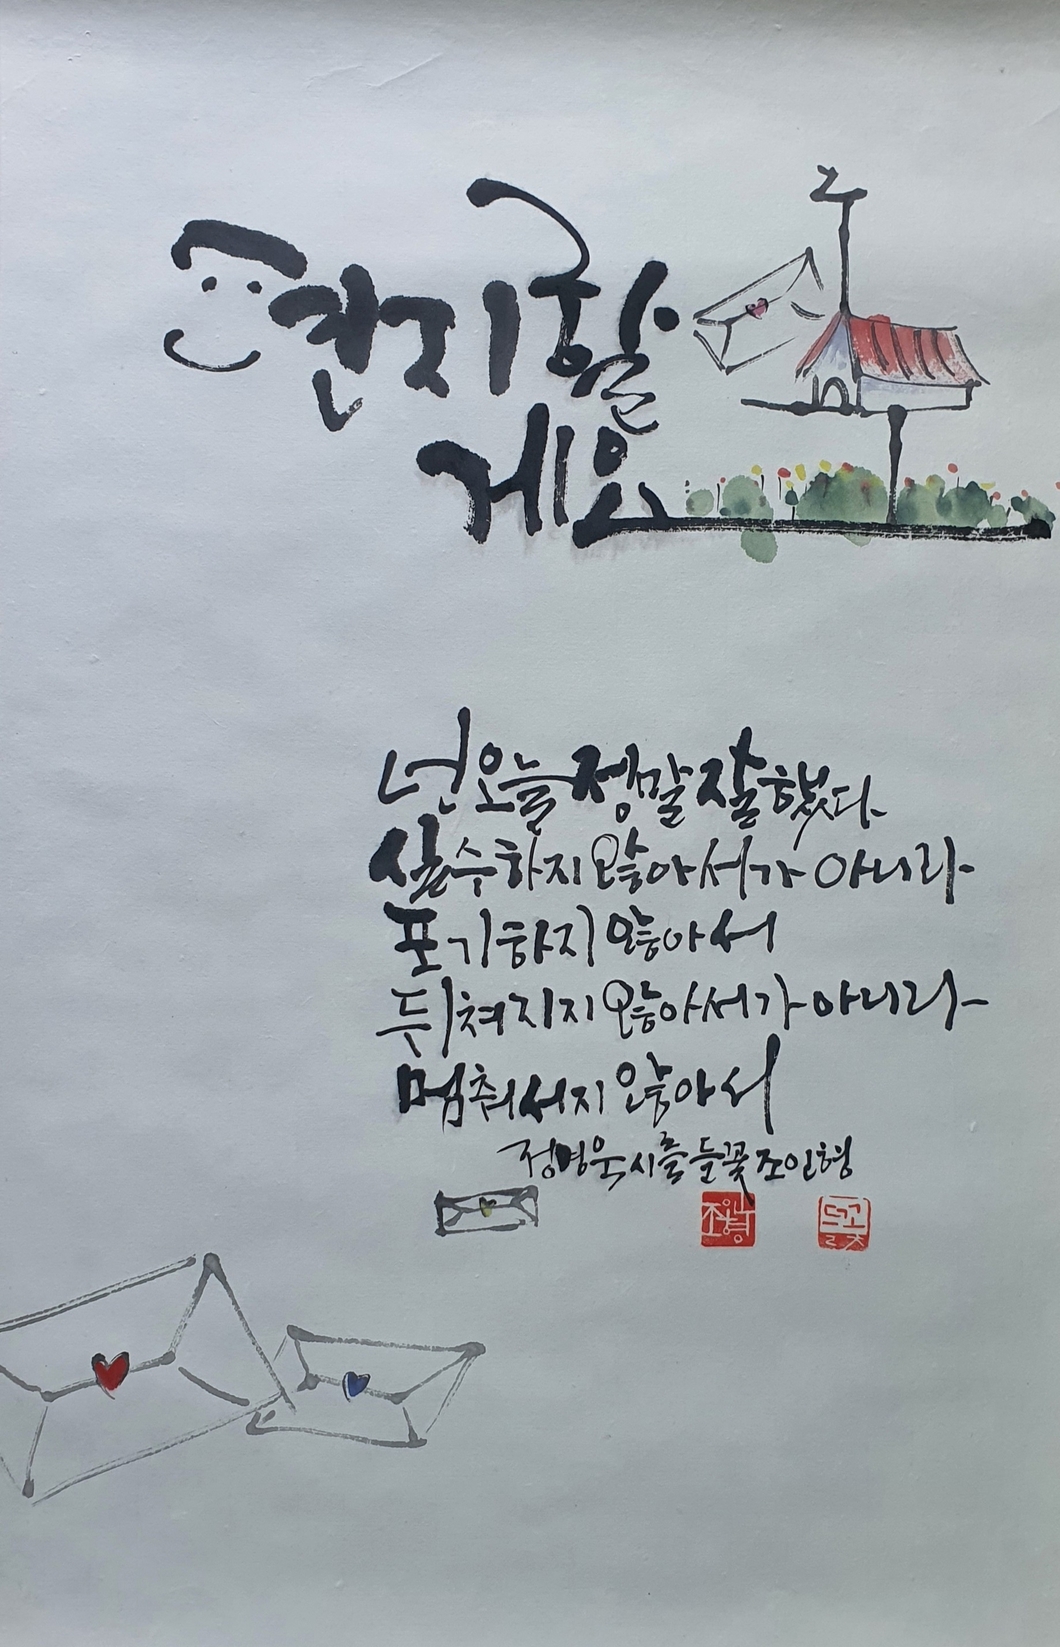 편지할
게요
넌 오늘 정말 잘했다
실수하지 않아서가 아니라
포기하지 않아서
뒤쳐지지 않아서가 아니라
멈춰서지 않아서
정명욱 시를 들꽃 조인형
조인형
들꽃